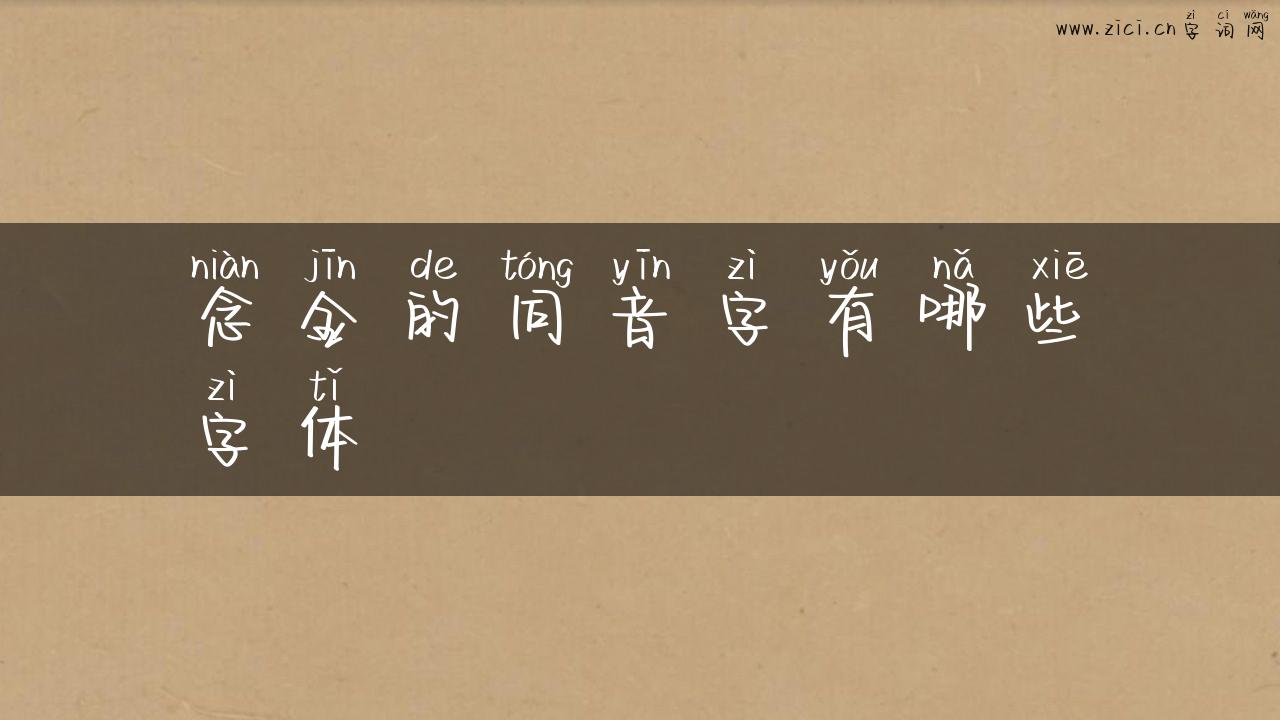 zì cí wǎng
www.zici.cn 字词网
niàn jīn de tóng yīn zì yǒu nǎ xiē
念金的同音字有哪些
zì tǐ
字体